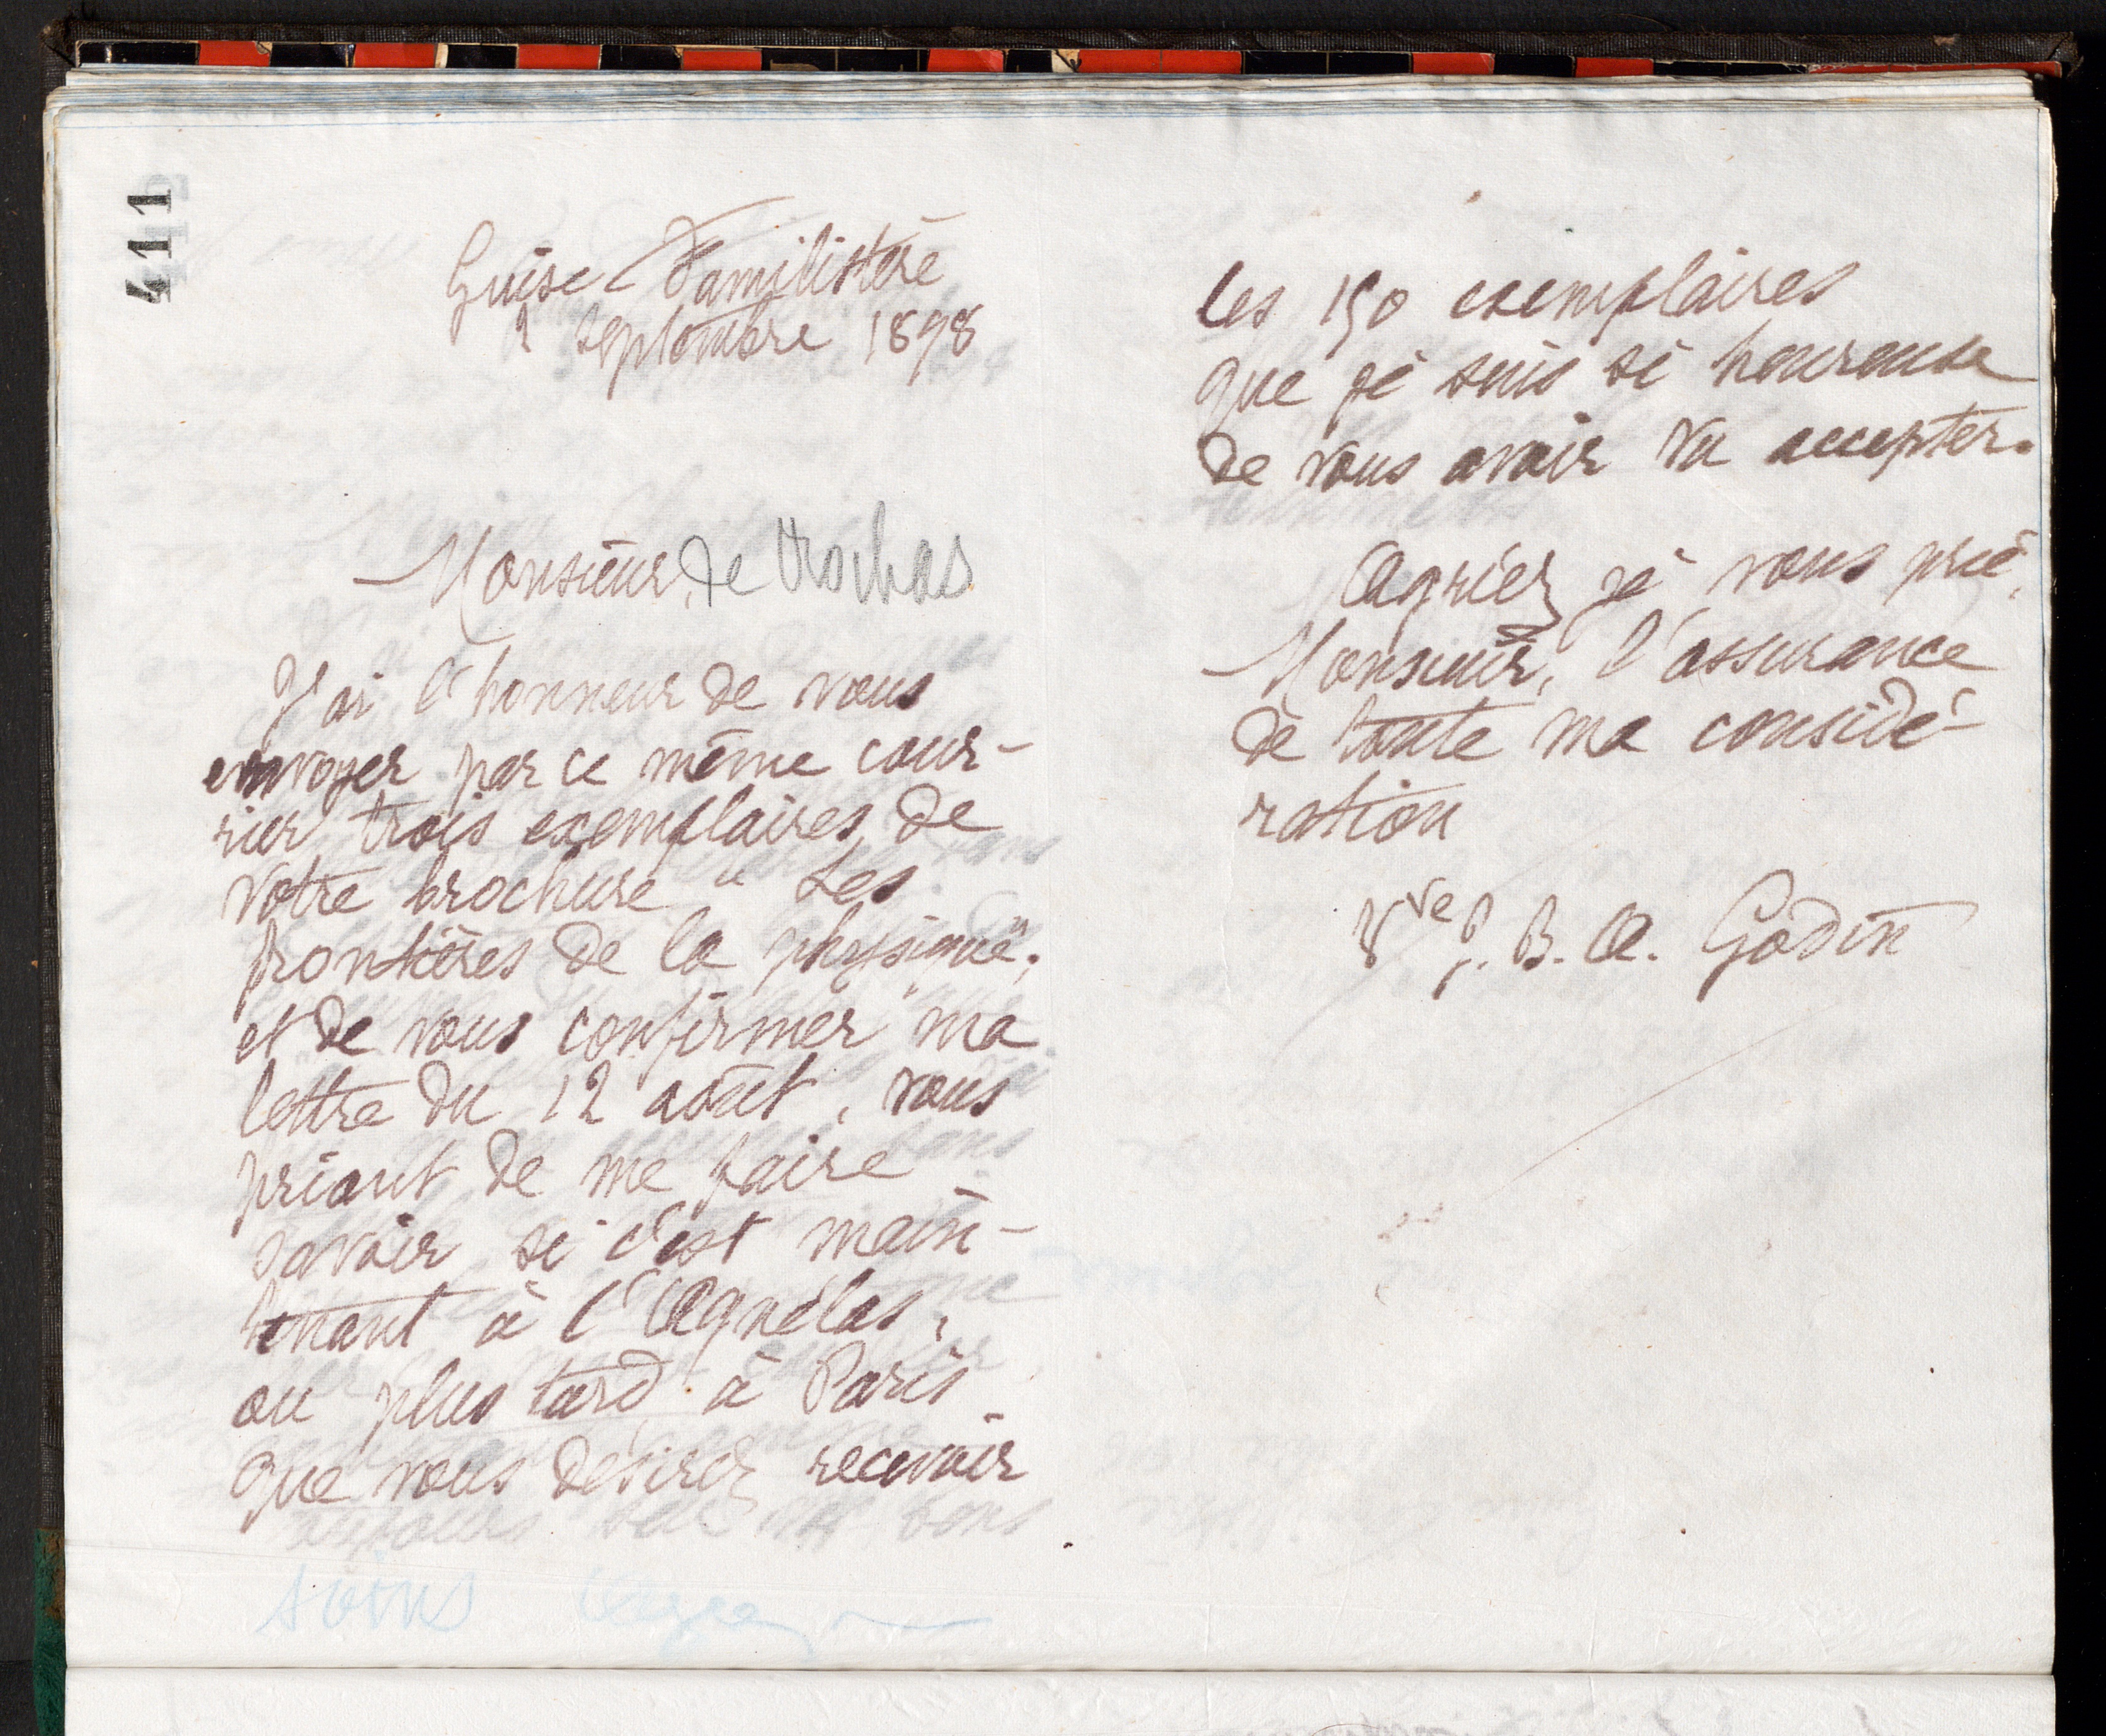 411
Guise Familistère
2 septembre 1898
Monsieur, de Rochas
J'ai l'honneur de vous
envoyer par ce même cour-
rier trois exemplaires de
votre brochure " Les
frontières de la physique "
et de vous confirmer ma
lettre du 12 août, vous
priant de me faire
savoir si c'est main-
tenant à l'Agnélas,
ou plus tard à Paris
que vous désirez recevoir
les 150 exemplaires
que je suis si heureuse
de vous avoir vu accepter.
Agréez je vous prie,
Monsieur, l'assurance
de toute ma considé-
ration
Vve J. B. A. Godin